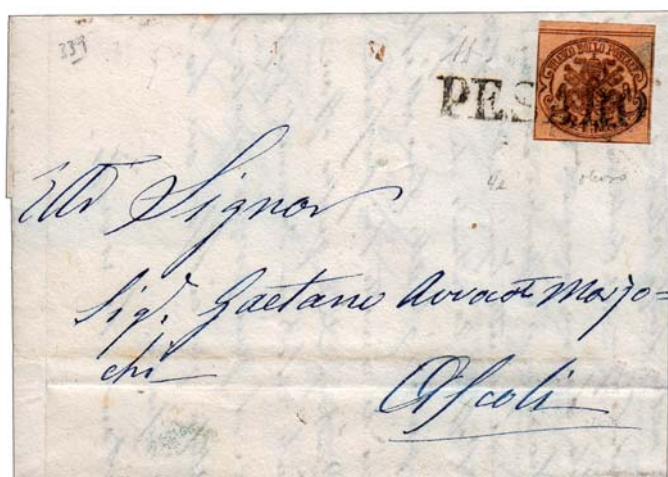 339
113
FRANCO BOLLO POSTALE
PESARO
Signor
Sig.r Gaetano Avvoc.to Marzo=
chi
Ascoli